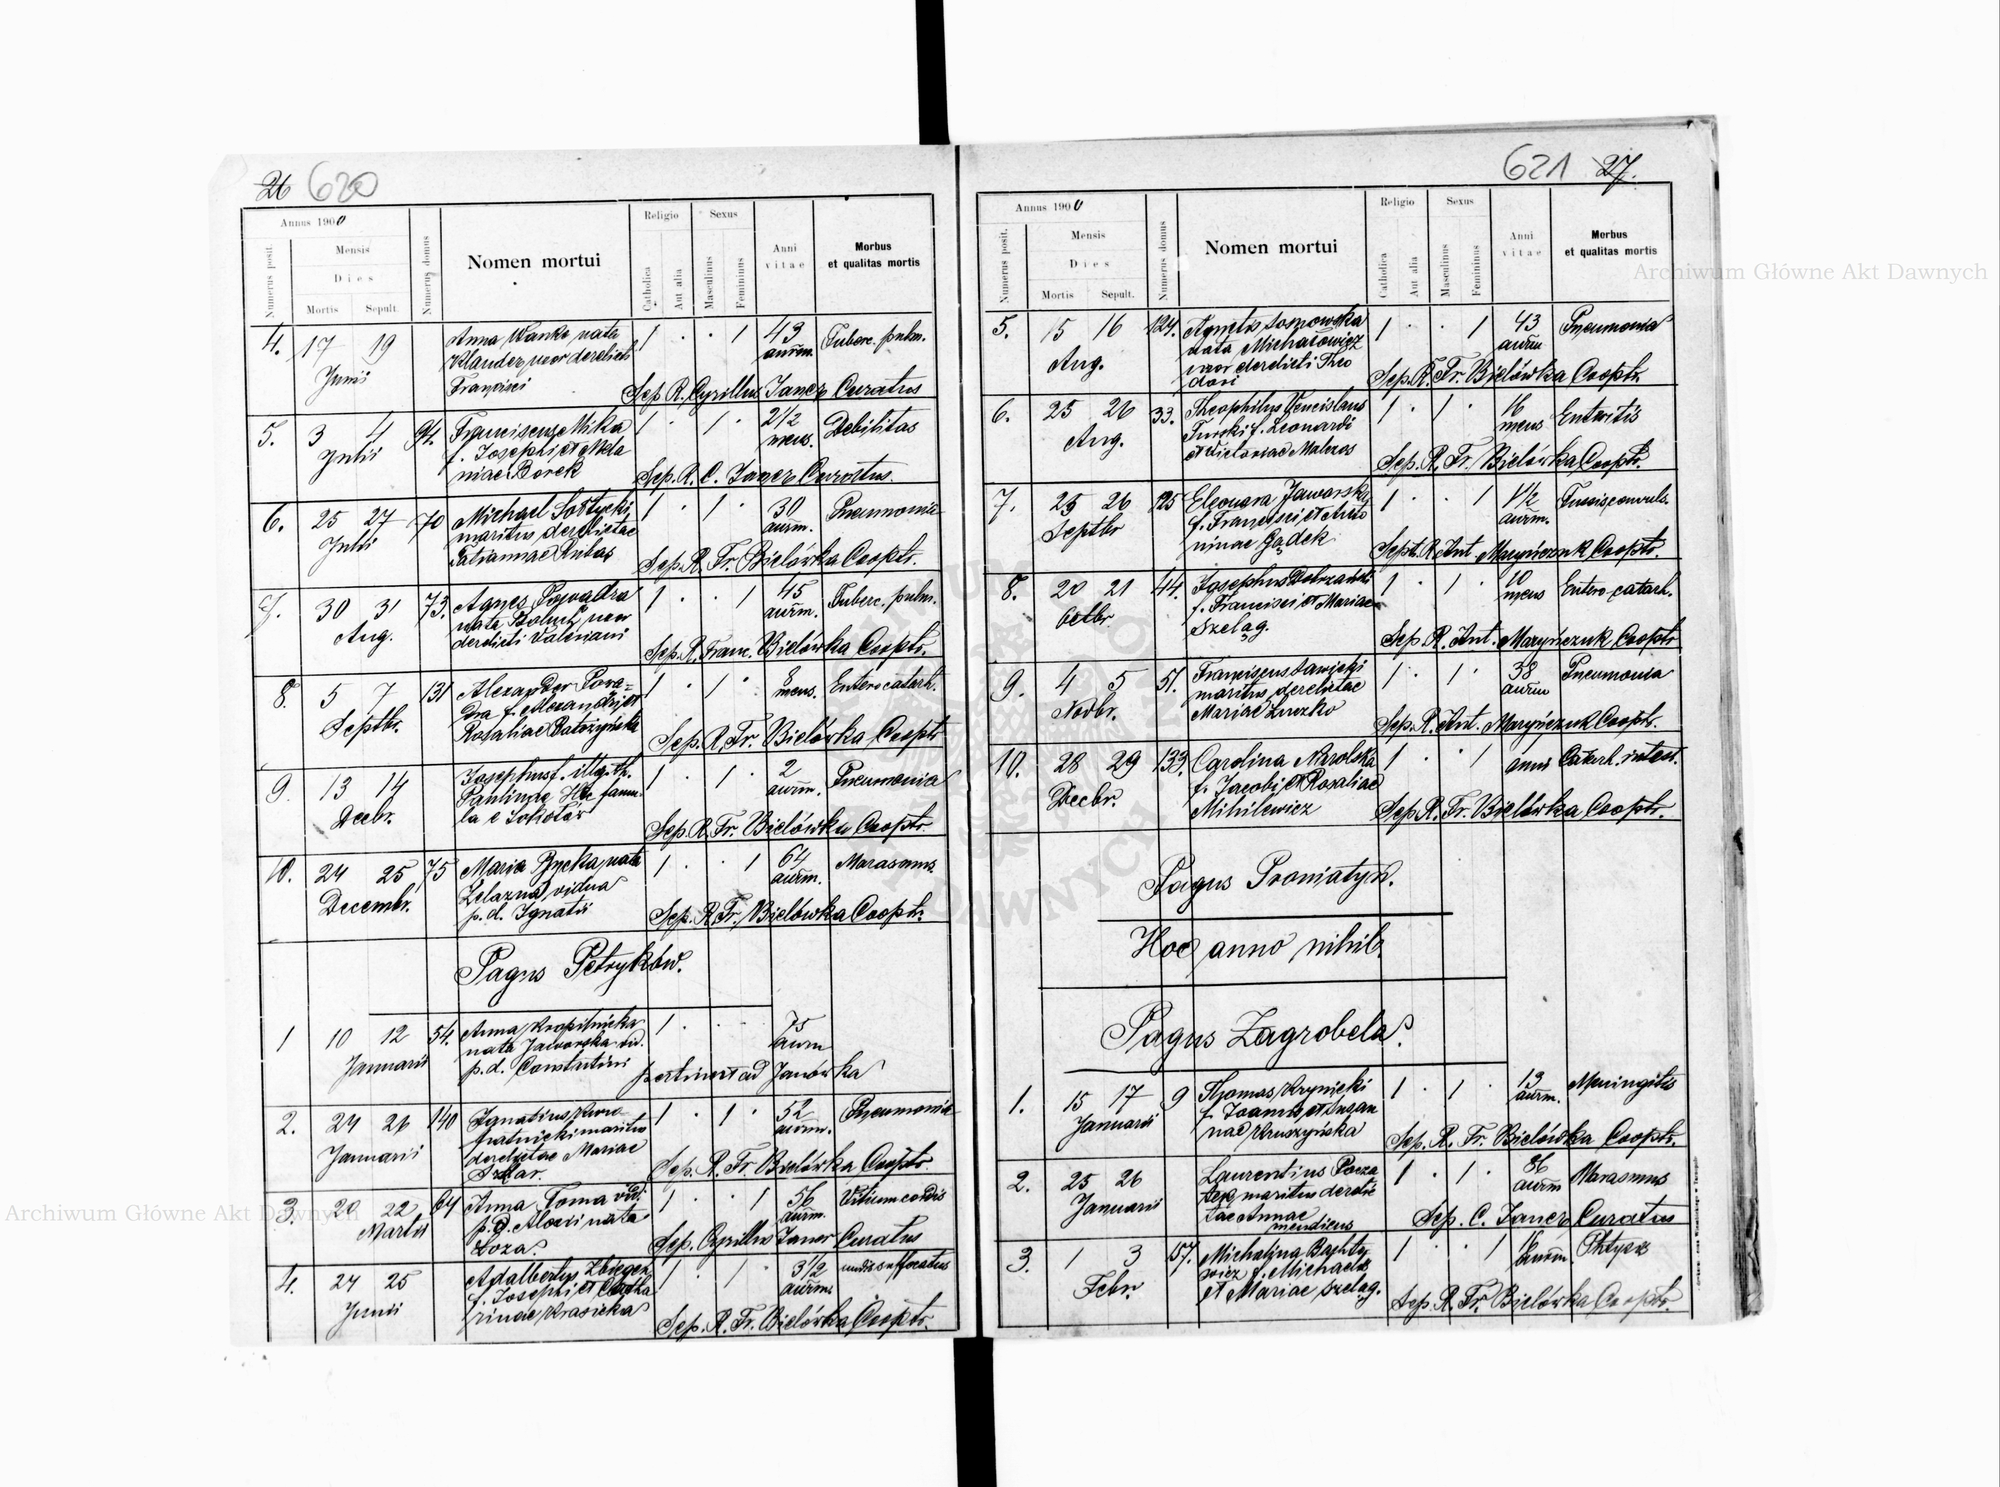 26 620
Annus 1900
Numerus posit.
Mensis
Dies
Mortis Sepult.
Numerus domus
Nomen mortui
Religio
Catholica
Aut alia
Sexus
Masculinus
Femininus
Anni vitae
Morbus et qualitas mortis
4. 17 19 Anna Wanke nata 1 . . 1 43 Tuberc. pulm.
Junii Klauder, uxor derelicti annm.
Francisci Sep. R. Cyrillus Janer Curatus
5. 3 4 94. Franciscus Mika 1 . 1 . 2 1/2 Debilitas
Julii f. Josephi et Mela mens.
niae Borek Sep. R. C. Janer Curatus.
6. 25 27 70 Michael Sołtycki 1 . 1 . 30 Pneumonia
Julii maritus derelictae annm.
Tatiannae Rubas Sep. R. Fr. Bielówka Cooptr.
7. 30 31 73. Agnes 1 . . 1 45 Tuberc. pulm.
Aug. nata uxor annm.
derelicti Valeriani Sep. R. Franc. Bielówka Cooptr.
8. 5 7 131 Alexander Powa= 1 . 1 . 8 Enterocatarh.
Septbr. dra f. Alexandri et mens.
Rosaliae Ratożyńska Sep. R. Fr. Bielówka Cooptr.
9. 13 14 Josephus f. illegth. 1 . 1 . 2 Pneumonia
Decbr. Paulinae famu- annm.
la e Sep. R. Fr. Bielówka Cooptr.
10. 24 25 75 Maria Bycka, nata 1 . . 1 64 Marasmus.
Decembr. Żelazna, vidua annm.
p. d. Ignatii Sep. R. Fr. Bielówka Cooptr.
Pagus Petryków.
1 10 12 54. Anna Kropilnicka 1 . . . 75
Januarii nata Jaworska vid. annm
p. d. Constantini pertinet ad Janówka
2. 24 26 140 Ignatius 1 . 1 . 52 Pneumonia
Januarii maritus annm.
derelictae Mariae
Sep. R. Fr. Bielówka Cooptr.
3. 20 22 64 Anna Toma vid. 1 . . 1 56 Vitium cordis
Martii p. d. Alexii nata annm.
Łoza. Sep. Cyrillus Janer Curatus
4. 24 25 Adalbertus 1 . 1 . 3 1/2 undis suffocatus
Junii f. Josephi et Catha annm.
rinae Krasicka Sep. R. Fr. Bielówka Cooptr.
621 27.
Annus 1900
Numerus posit.
Mensis
Dies
Mortis Sepult.
Numerus domus
Nomen mortui
Religio
Catholica
Aut alia
Sexus
Masculinus
Femininus
Anni vitae
Morbus et qualitas mortis
5. 15 16 124. Agnetis Sosnowska 1 . . 1 43 Pneumonia
Aug. nata Michałowicz annm
uxor derelicti Theo
dori Sep. R. Fr. Bielówka Cooptr.
6. 25 26 33. Theophilus Venceslaus 1 . 1 . 16 Enteritis
Aug. Turski f. Leonardi mens
et Victoriae Malczos Sep. R. Fr. Bielówka Cooptr.
7. 25 26 125 Eleonara Jaworska 1 . . 1 1 1/2 Tussis convuls.
Septbr f. Francisci et Anto annm.
ninae Gądek. Sept. R. Ant. Maryńczuk Cooptr.
8. 20 21 44. Josephus Dobrzański 1 . 1 . 10 Entero-catarh.
Octbr. f. Francisci et Mariae mens
Szeląg. Sep. R. Ant. Maryńczuk Cooptr
9. 4 5 51. Franciscus Sawicki 1 . 1 . 38 Pneumonia
Novbr. maritus derelictae annm
Mariae Łuczko Sep. R. Ant. Maryńczuk Cooptr.
10. 28 29 133. Carolina Narolska 1 . . 1 anni Catarh. intest.
Decbr. f. Jacobi et Rosaliae
Mihilewicz Sep. R. Fr. Bielówka Cooptr.
Pagus Proniatyn.
Hoc anno nihil.
Pagus Zagrobela.
1. 15 17 9 Thomas Krynicki 1 . 1 . 13 Meningitis
Januarii f. Joannis et annm.
nae Kruszyńska Sep. R. Fr. Bielówka Cooptr.
2. 25 26 Laurentius 1 . 1 . 86 Marasmus
Januarii maritus derelic annm
tae Annae
mendicus Sep. C. Janer Curatus
3. 1 3 157. Michalina Bachty 1 . . 1 16 Phtysis
Febr. wicz f. Michaelis annm.
et Mariae Szeląg. Sep. R. Fr. Bielówka Cooptr.
Archiwum Główne Akt Dawnych
Archiwum Główne Akt Dawnych